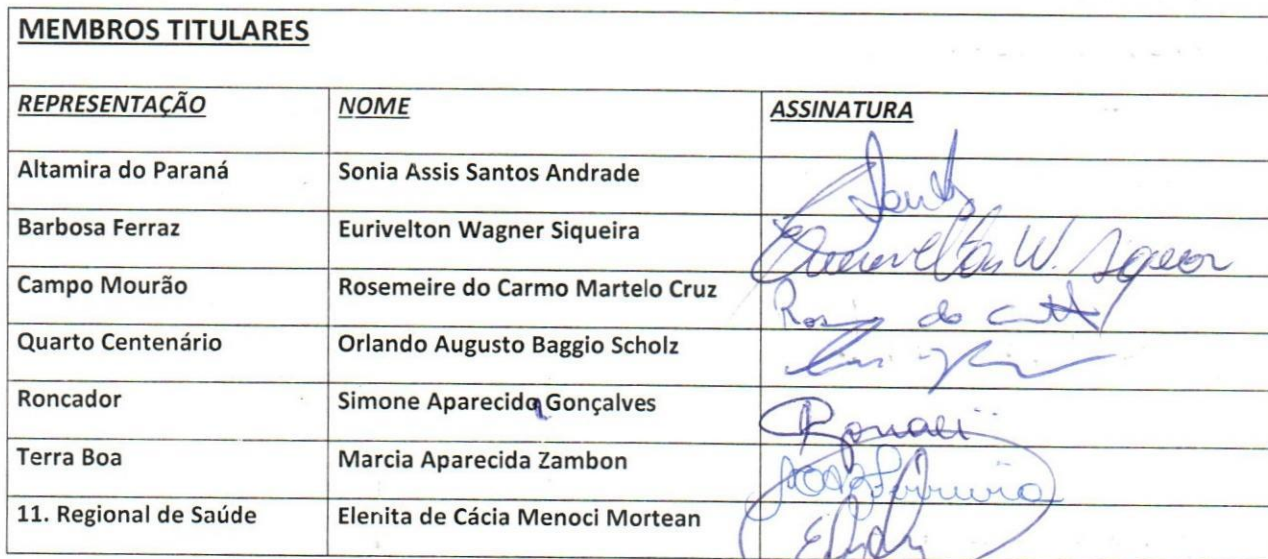 MEMBROS TITULARES
REPRESENTAÇÃO NOME ASSINATURA
Altamira do Paraná Sonia Assis Santos Andrade
Barbosa Ferraz Eurivelton Wagner Siqueira
Campo Mourão Rosemeire do Carmo Martelo Cruz
Quarto Centenário Orlando Augusto Baggio Scholz
Roncador Simone Aparecida Gonçalves
Terra Boa Marcia Aparecida Zambon
11. Regional de Saúde Elenita de Cácia Menoci Mortean